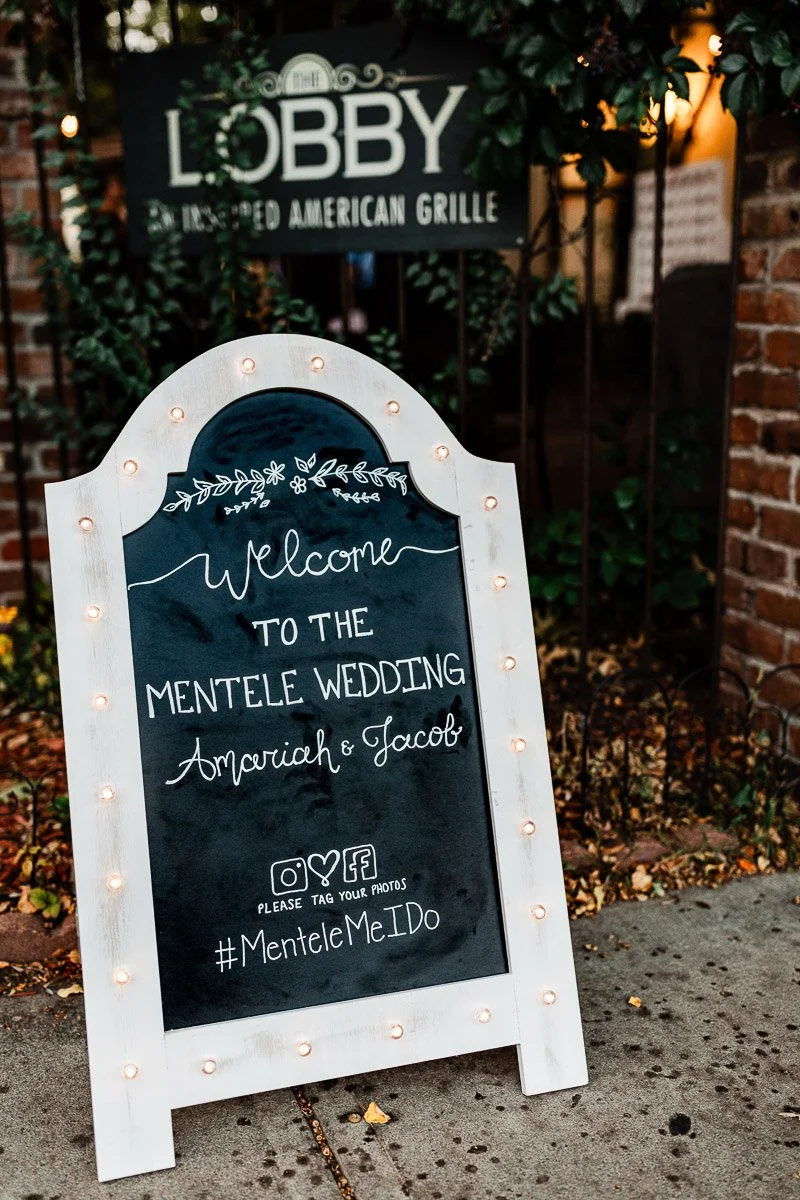 THE
LOBBY
AN INSPIRED AMERICAN GRILLE
Welcome
TO THE
MENTELE WEDDING
Amariah & Jacob
PLEASE TAG YOUR PHOTOS
#MenteleMeIDo